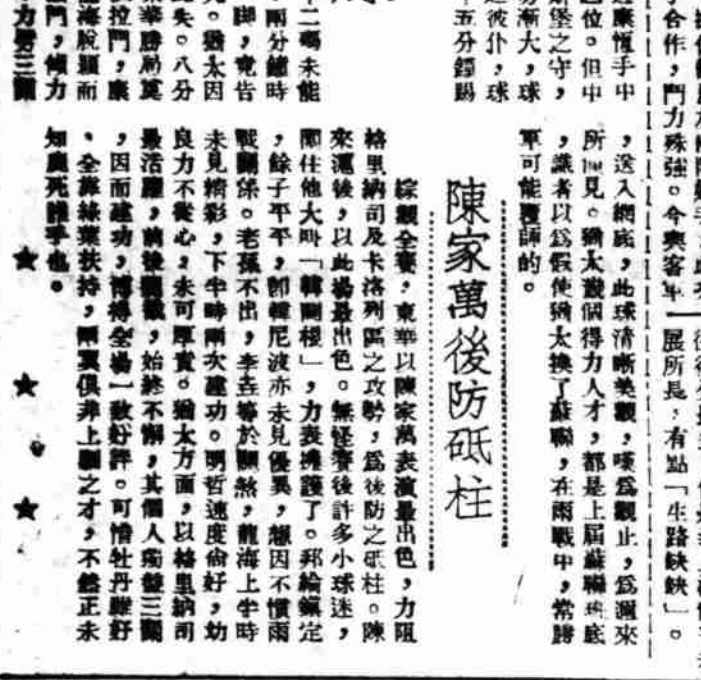 合作，鬥力殊強。今與客軍
展所長，有點「生路缺缺」。
，送入網底，此球清晰美觀，嘆爲觀止，爲滬來
所見。猶太設個得力人才，都是上屆蘇聯班底
，識者以爲假使猶太換了蘇聯，在兩戰中，常勝
軍可能覆師的。
陳家萬後防砥柱
綜觀全賽，東華以陳家萬表演最出色，力阻
格里納司及卡洛列區之攻勢，爲後防之砥柱。陳
來滬後，以此場最出色。無怪賽後許多小球迷，
圍住他大叫「韓闌根」，力表擁護了。鄭綸鎮定
，餘子平平，卽韓尼波亦未見優異，想因不慣雨
戰關係。老孫不出，李垚等於顧煞，龍海上半時
未見精彩，下半時兩次建功。明哲速度尙好，幼
良力不從心，未可厚責。猶太方面，以格里納司
最活躍，前後，始終不懈，其個人獨盤三關
，因而建功，博得全場一致好評。可惜牡丹雖好
，全靠綠葉扶持，兩翼俱非上驷之才，不然正未
知鹿死誰手也。
二碼未能
兩分鐘時
脚，竟告
。猶太因
失。八分
華勝局奠
拉門，東
海脫穎而
門，傾力
力勢三關
棄恆手中
位。但中
堡之守，
勢漸大，球
彼仆，球
五分鐘踢